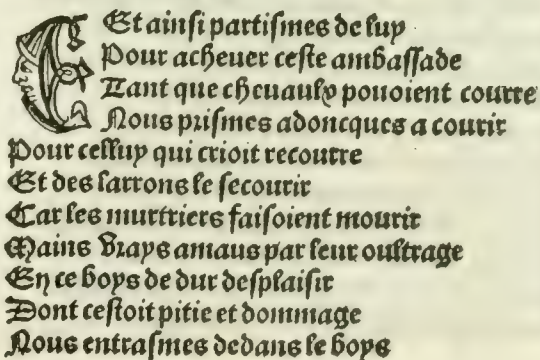 Et ainsi partismes de luy
Pour acheuer ceste ambassade
Tant que cheuaulx pouoient courre
Nous prismes adoncques a courir
Pour celluy qui crioit recourre
Et des larrons le secourir
Car les murtriers faisoient mourir
Mains vrays amans par leur oultrage
En ce boys de dur desplaisir
Dont cestoit pitie et dommage
Nous entrasmes dedans le boys